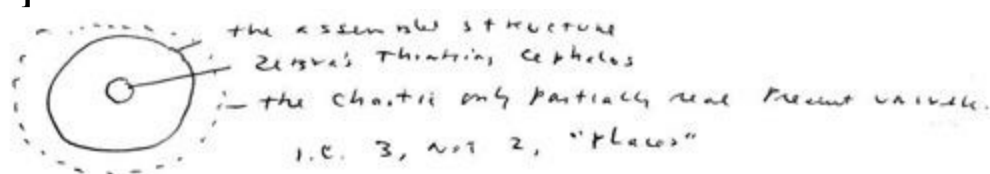 the assembled structure
Zebra's Thinking Cephalos
the chaotic only partially real present universe.
i.e. 3, not 2, "places"